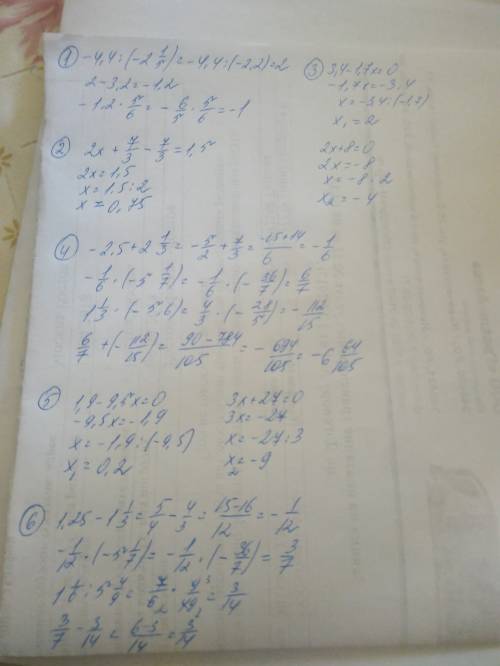 ① -4,4:(-2 1/5)=-4,4:(-2,2)=2
2-3,2=-1,2
-1,2·5/6=-6/5·5/6=-1
② 2x+7/3-7/3=1,5
2x=1,5
x=1,5:2
x=0,75
③ 3,4-1,7x=0
-1,7x=-3,4
x=-3,4:(-1,7)
x₁=2
2x+8=0
2x=-8
x=-8:2
x₂=-4
④ -2,5+2 1/3=-5/2+7/3=(-15+14)/6=-1/6
-1/6·(-5 1/7)=-1/6·(-36/7)=6/7
1 1/3·(-5,6)=4/3·(-28/5)=-112/15
6/7+(-112/15)=(90-784)/105=-694/105=-6 64/105
⑤ 1,9-9,5x=0
-9,5x=-1,9
x=-1,9:(-9,5)
x₁=0,2
3x+27=0
3x=-27
x=-27:3
x₂=-9
⑥ 1,25-1 1/3=5/4-4/3=(15-16)/12=-1/12
-1/12·(-5 1/7)=-1/12·(-36/7)=3/7
1 1/6:5 4/9=7/6·9/49=3/14
3/7-3/14=(6-3)/14=3/14